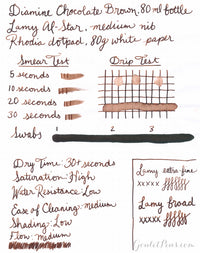 Diamine Chocolate Brown, 80 ml bottle
Lamy Al-Star, medium nib
Rhodia dotpad, 80g white paper
Smear Test
Drip Test
5 seconds
10 seconds
20 seconds
30 seconds
Swabs 1 2 3
Dry Time: 30+ seconds
Saturation: High
Water Resistance: Low
Ease of Cleaning: medium
Shading: Low
Flow: medium
Lamy extra-fine
xxxxx
Lamy broad
xxxxx